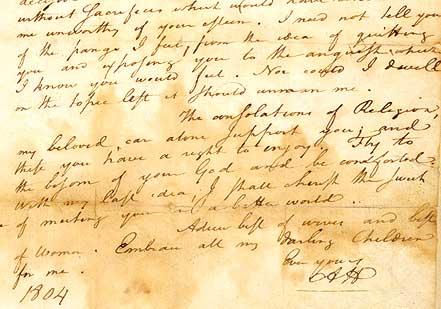 without sacrifices which would have
me unworthy of your esteem. I need not tell you
of the pangs I feel, from the idea of quitting
you and exposing you to the anguish which
I know you would feel. Nor could I dwell
on the topic lest it should unman me.
The consolations of Religion,
my beloved, can alone support you; and
these you have a right to enjoy. Fly to
the bosom of your God and be comforted.
With my last idea, I shall cherish the sweet
of meeting you in a better world.
Adieu best of wives and best
of Women. Embrace all my darling Children
for me.
Ever yours
AH
1804